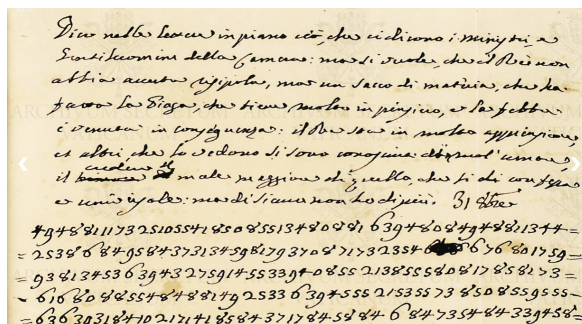 Dico nelle lettere in piano ciò, che ci dicono i ministri, e
Gentiluomini della Camera: ma si vuole, che il Re non
abbia avuta risipola, ma un sacco di materia, che ha
fatto la Piaga, che tiene molto in pensiero, e la febbre
è venuta in conseguenza: il Re sta in molta apprensione,
et altri, che lo vedono si sono
credere il
il male maggiore di quello, che si di
e universale: ma di siano non ho di più. 31 8bre
4948811173251055418508551348088163948084948811344=
=2538684958437313459817937087173235468676801759=
=93813453639432759145533940855213855580817858173=
-61680885548488149253363945552153557385085595 55=
=636303184102171418584371784584846847354843394 58=